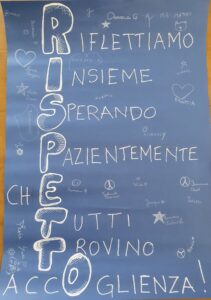 RIFLETTIAMO
INSIEME
SPERANDO
PAZIENTEMENTE
CHE
TUTTI
TROVINO
ACCOGLIENZA!